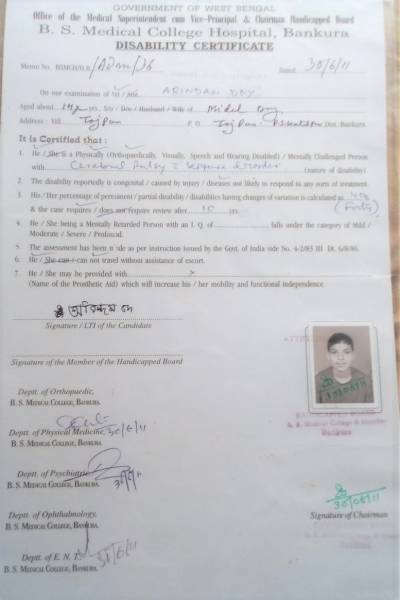 GOVERNMENT OF WEST BENGAL
Office of the Medical Superintendent cum Vice-Principal & Chairman Handicapped Board
B. S. Medical College Hospital, Bankura
DISABILITY CERTIFICATE
Memo No. BSMCH/H.B/Adm/36 Dated 30/6/11
On our examination of Sri / Smt. ARINDAM DEY
Aged about yrs, S/o / D/o / Husband / Wife of
Address : Vill Tajpur P.O. Tajpur Dist. Bankura.
It is Certified that :
1. He / She is a Physically (Orthopaedically, Visually, Speech and Hearing Disabled) / Mentally Challenged Person
with Cerebral Palsy disorder (nature of disability).
2. The disability reportedly is congenital / caused by injury / diseases not likely to respond to any sorts of treatment.
3. His / Her percentage of permanent / partial disability / disabilities having changes of variation is calculated as 40%
& the case requires / does not require review after 10 yrs. (Forty)
4. He / She being a Mentally Retarded Person with an I. Q. of falls under the category of Mild /
Moderate / Severe / Profound.
5. The assessment has been made as per instruction issued by the Govt. of India vide No. 4-2/83 III Dt. 6/8/86.
6. He / She can / can not travel without assistance of escort.
7. He / She may be provided with
(Name of the Prosthetic Aid) which will increase his / her mobility and functional independence.
অরিন্দম দে
Signature / LTI of the Candidate
Signature of the Member of the Handicapped Board
Deptt. of Orthopaedic,
B. S. MEDICAL COLLEGE, BANKURA.
Deptt. of Physical Medicine, 30/6/11
B. S. MEDICAL COLLEGE, BANKURA.
Deptt. of Psychiatric,
B. S. MEDICAL COLLEGE, BANKURA. 30/6/11
B. S. Medical College & Hospital
Bankura
Deptt. of Ophthalmology,
B. S. MEDICAL COLLEGE, BANKURA.
30/06/11
Signature of Chairman
Deptt. of E. N. T. 30/6/11
B. S. MEDICAL COLLEGE, BANKURA.